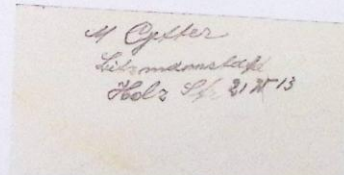 M Cytter
Litzmannstadt
Holz Str 21 W 13